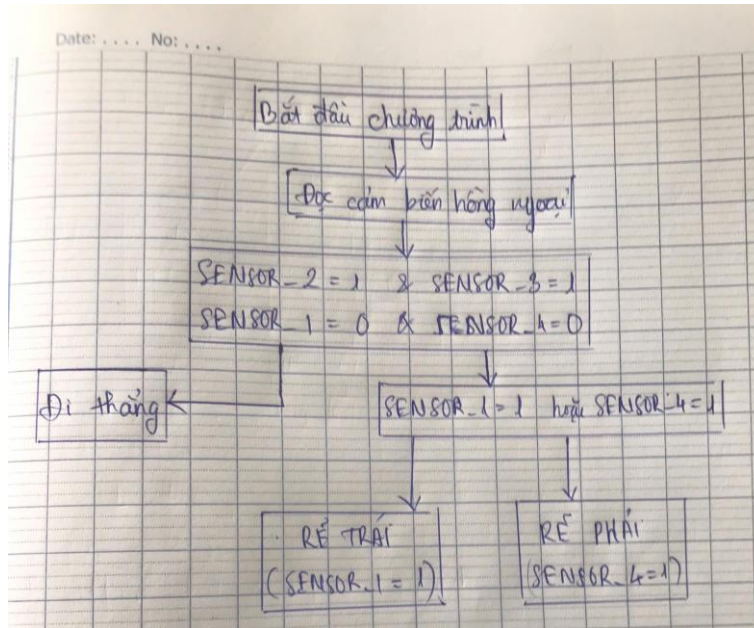 Date: .... No: ....
Bắt đầu chương trình
Đọc cảm biến hồng ngoại
SENSOR_2 = 1 & SENSOR_3 = 1
SENSOR_1 = 0 & SENSOR_4 = 0
Đi thẳng
SENSOR_1 = 1 hoặc SENSOR_4 = 1
RẼ TRÁI
(SENSOR_1 = 1)
RẼ PHẢI
(SENSOR_4=1)